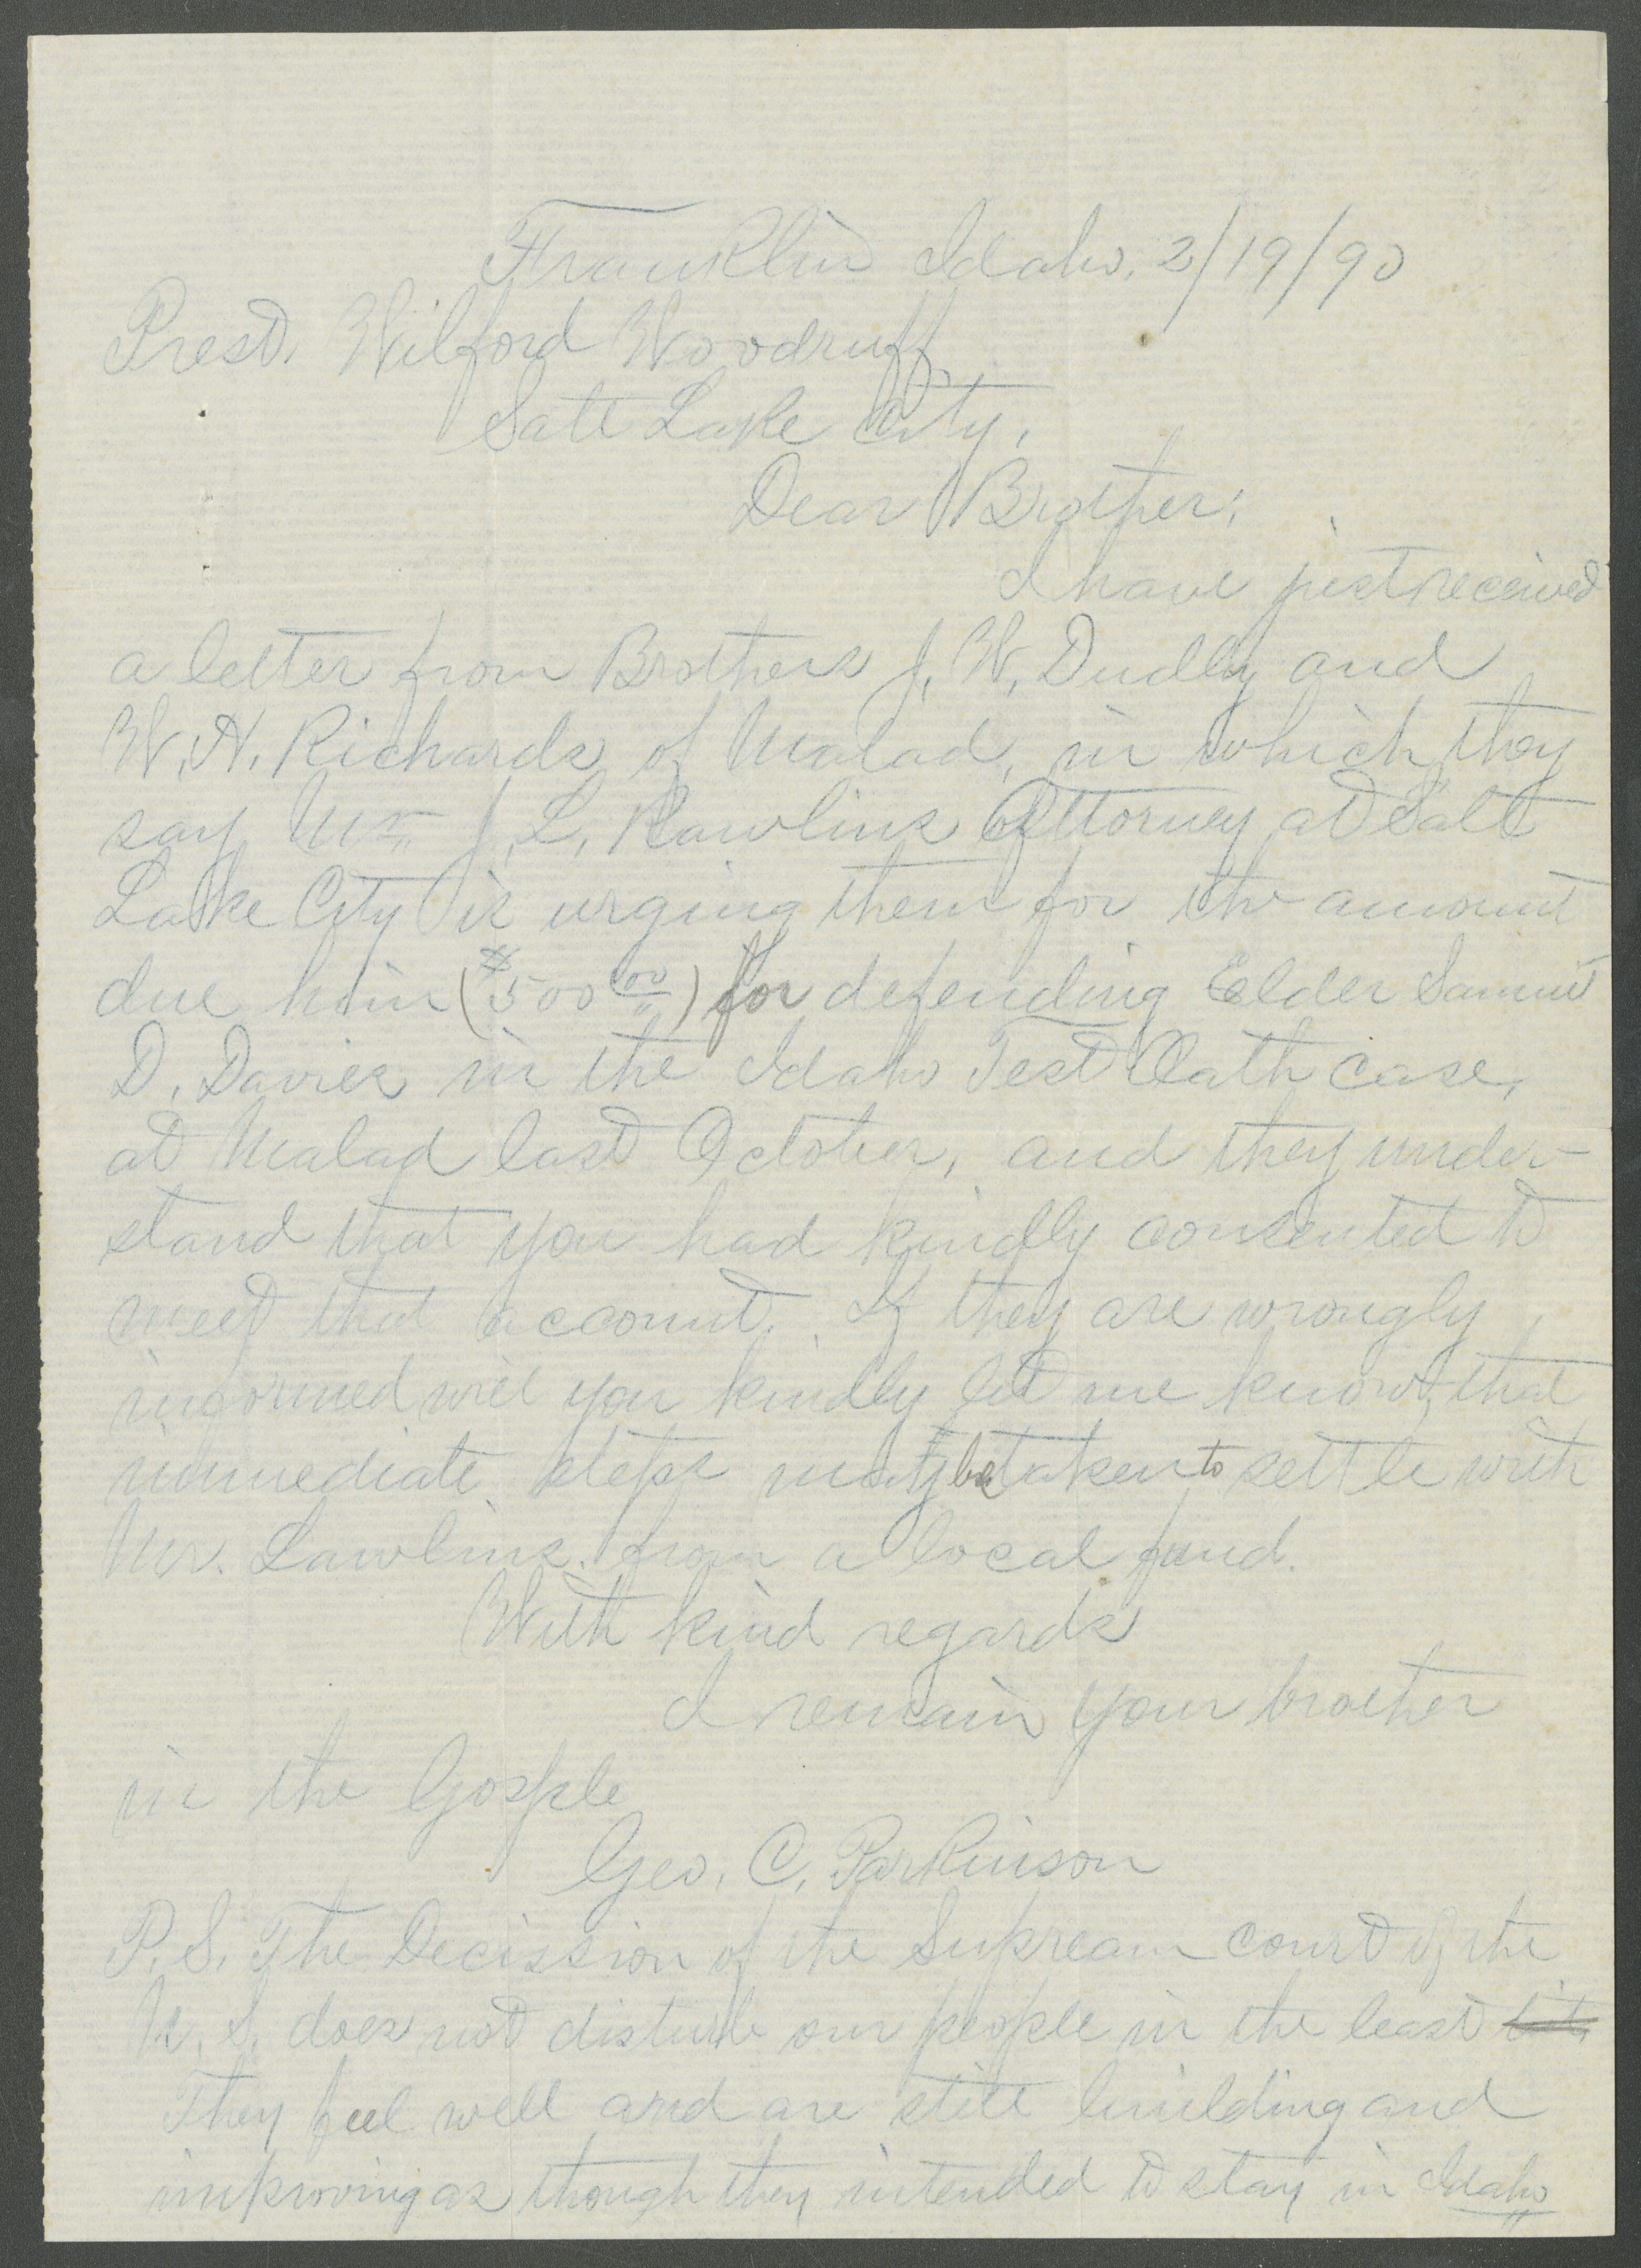 Franklin Idaho, 2/19/90
Prest. Wilford Woodruff,
Salt Lake City,
Dear Brother;
I have just received
a letter from Brothers J. W. Dudley and
W. H. Richards of Malad, in which they
say Mr. J. L. Rawlins Attorney at Salt
Lake City is urging them for the amount
due him ($500 00) for defending Elder
D. Davies in the Idaho Test Oath case,
at Malad last October, and they under-
stand that you had kindly consented to
meet that account. If they are wrongly
informed will you kindly let me know, that
immediate steps may be taken to settle with
Mr. Lawlins. from a local fund.
With kind regards
I remain your brother
in the Gosple
Geo. C. Parkinson
P.S. The Decission of the Supream court of the
U. S. does not disturb our people in the least bit.
They feel well and are still building and
improving as though they intended to stay in Idaho